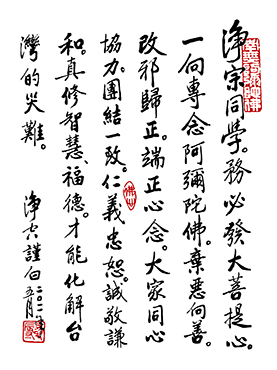 淨宗同學。務必發大菩提心。
一向專念阿彌陀佛。棄惡向善。
改邪歸正。端正心念。大家同心
協力。團結一致。仁義忠恕。誠敬謙
和。真修智慧、福德。才能化解台
灣的灾難。
淨空謹白
二〇一一年
五月